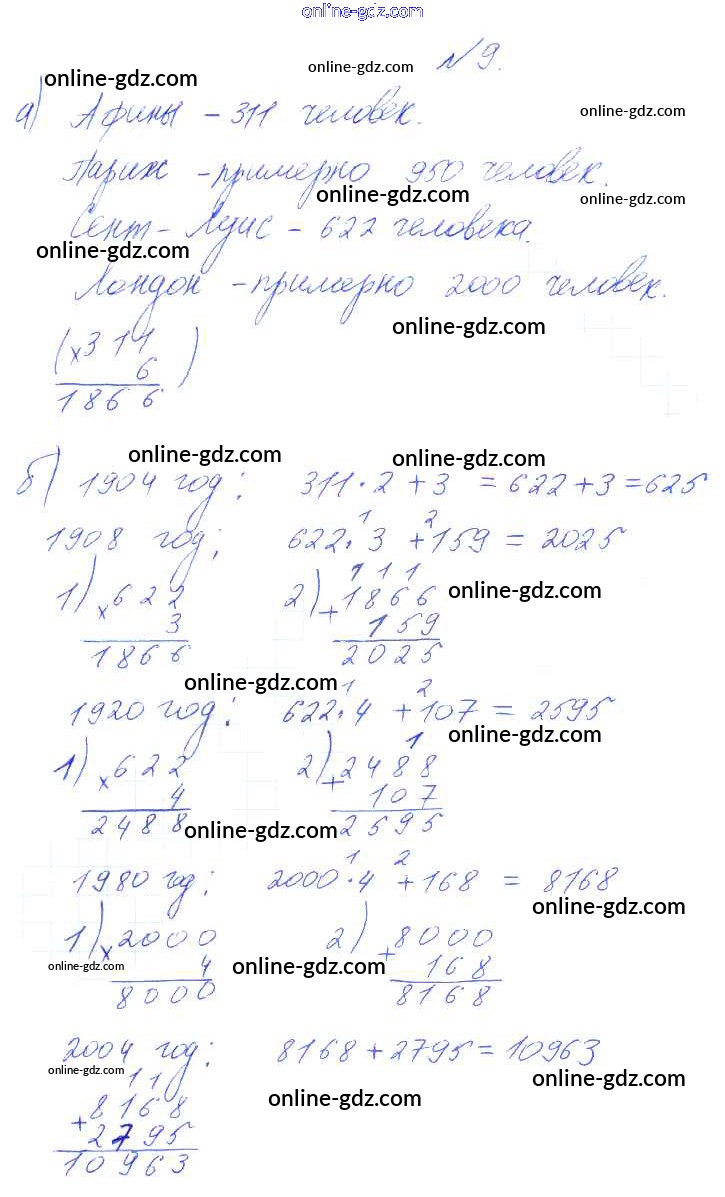 online-gdz.com
№ 9.
online-gdz.com online-gdz.com
а) Афины – 311 человек. online-gdz.com
Париж – примерно 950 человек.
online-gdz.com online-gdz.com
Сент-Луис – 622 человека.
online-gdz.com
Лондон – примерно 2000 человек.
online-gdz.com
( × 311
6 )
1866
online-gdz.com online-gdz.com
б) 1904 год: 311 · 2 + 3 = 622 + 3 = 625
1 2
1908 год: 622 · 3 + 159 = 2025
1 1 1
1) × 622 2) + 1866 online-gdz.com
3 159
1866 2025
online-gdz.com
1 2
1920 год: 622 · 4 + 107 = 2595
online-gdz.com
1
1) × 622 2) + 2488
4 107
2488 2595
online-gdz.com
1 2
1980 год: 2000 · 4 + 168 = 8168
online-gdz.com
1) × 2000 2) + 8000
online-gdz.com 4 online-gdz.com 168
8000 8168
2004 год: 8168 + 2795 = 10963
online-gdz.com online-gdz.com
1 1
+ 8168 online-gdz.com
2795
10963